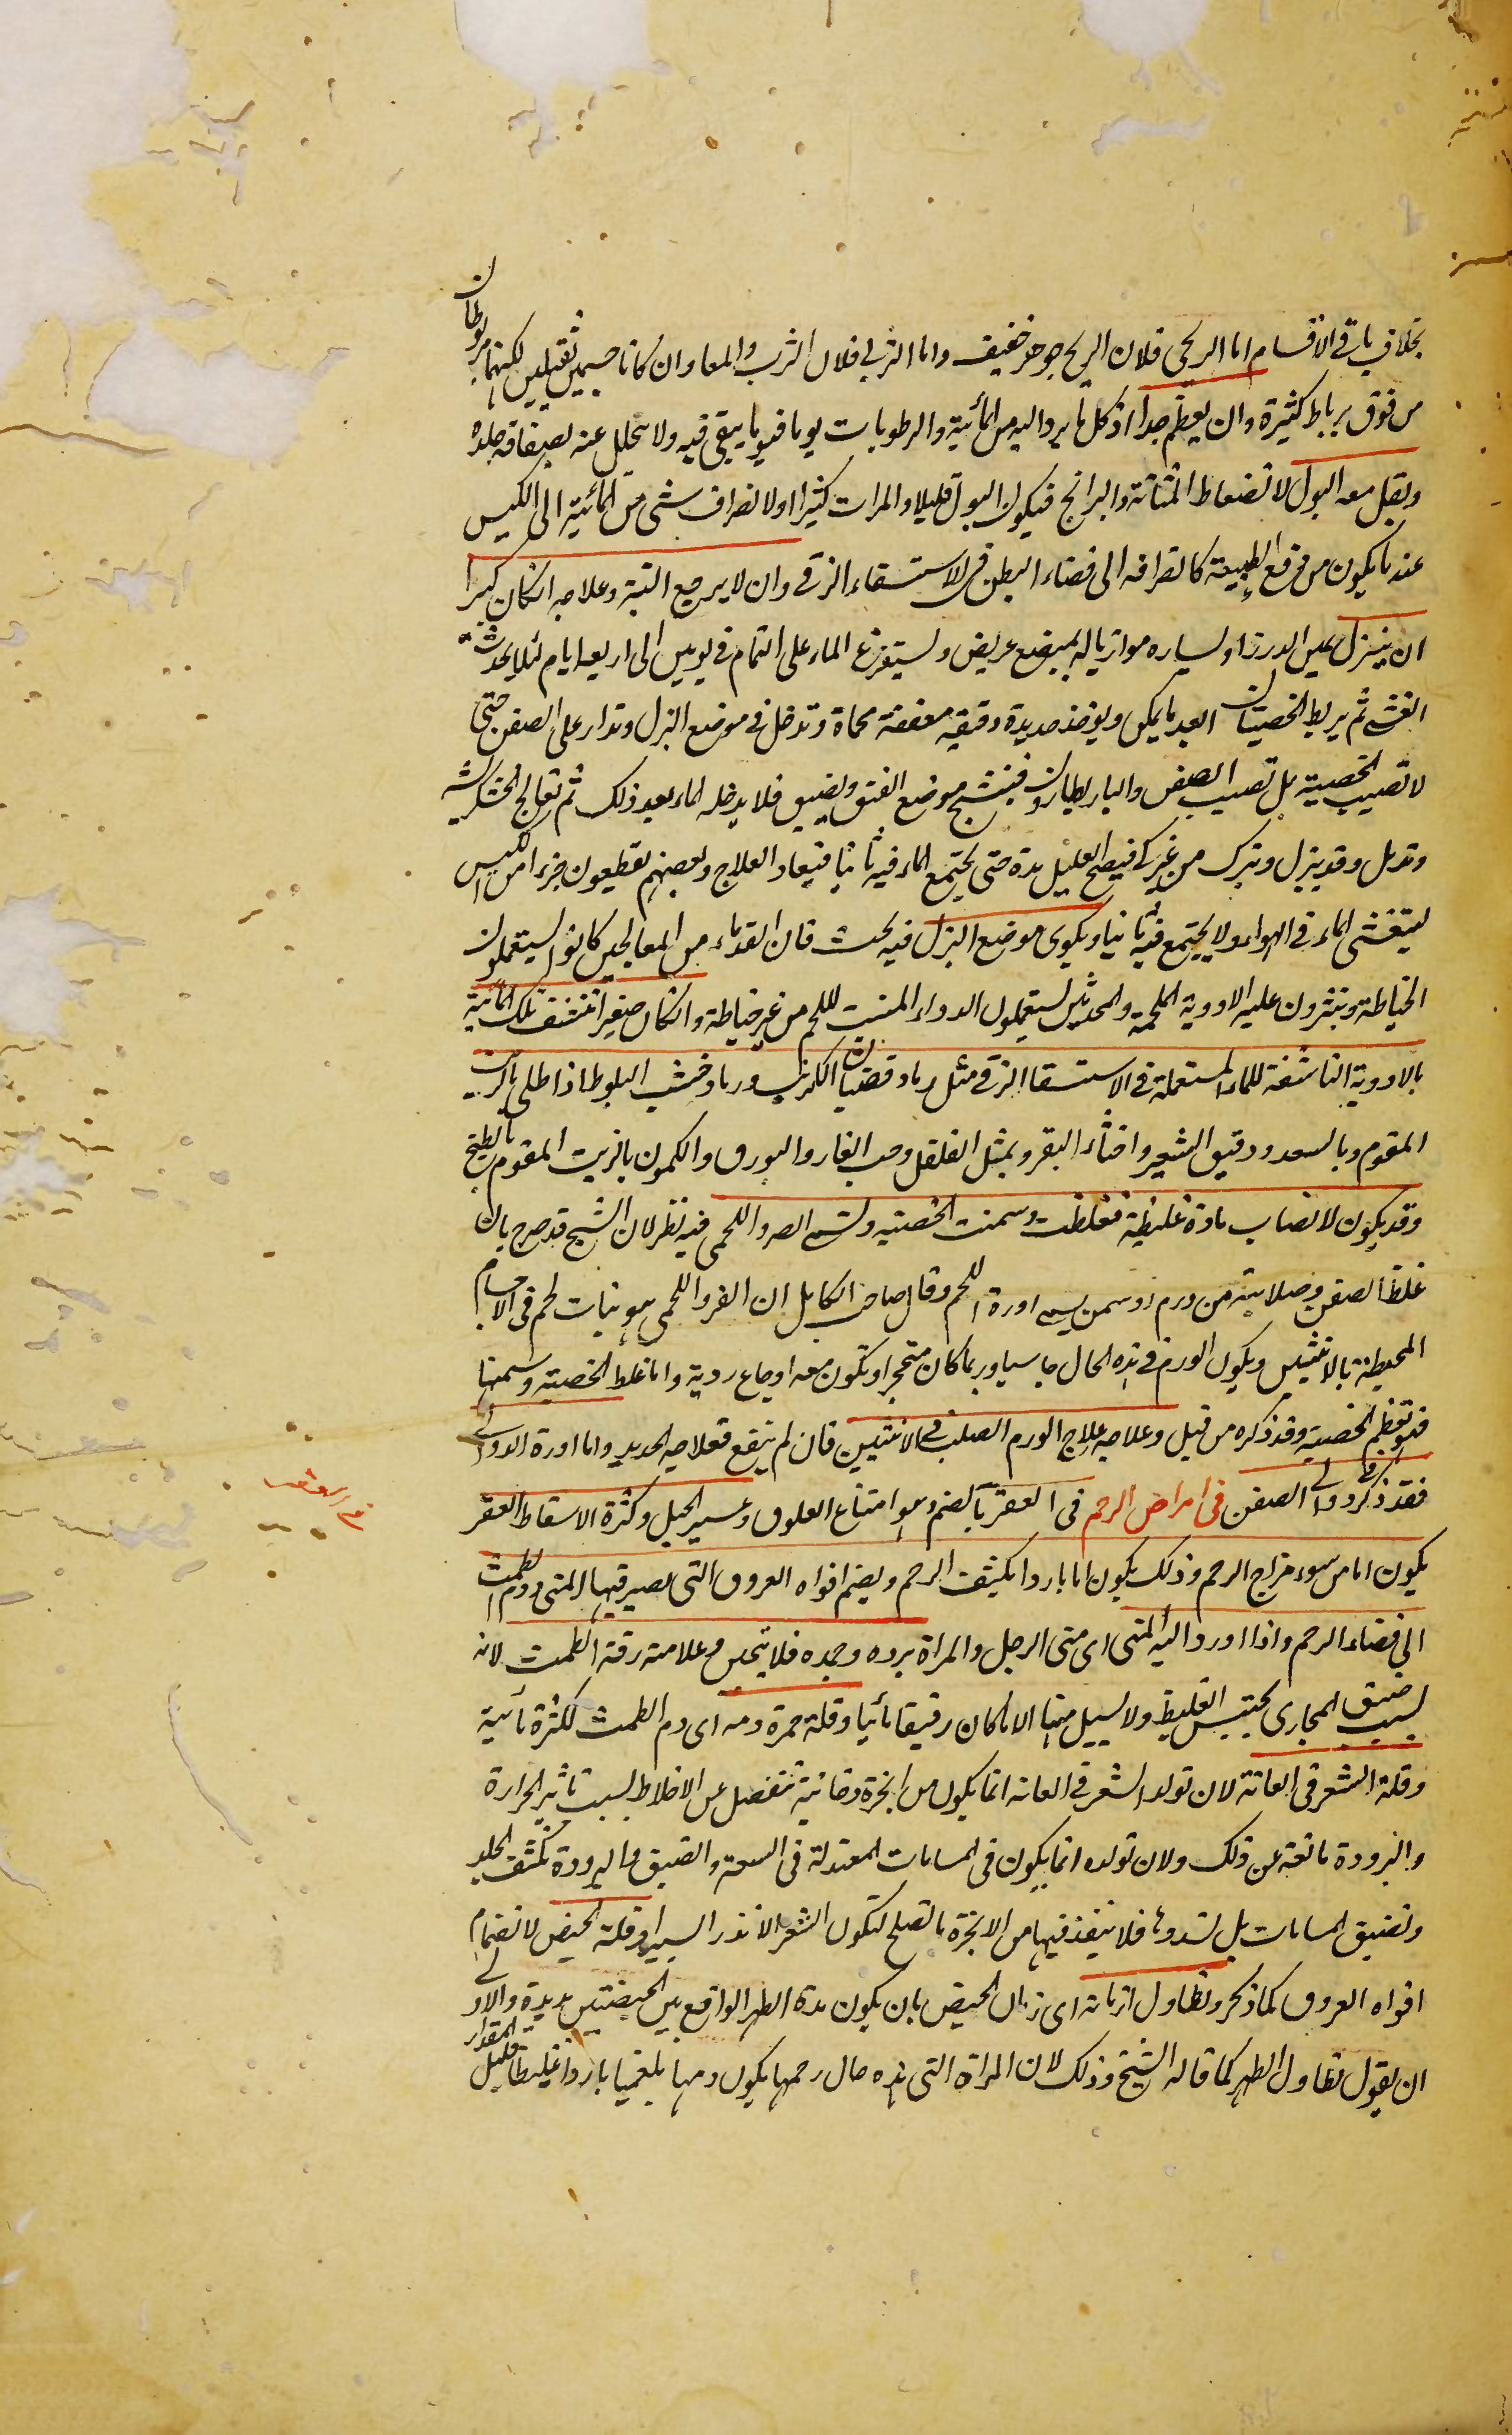 بخلاف باقی الاقسام اما الریحی فلان الریح جوهر خفیف واما الثربی فلان الثرب والمعا وان کانا جسمین ثقیلین لکنهما مربوطان
من فوق برباط کثیرة وان یعظم جدا اذ کل ما یرد الیه من المائیة والرطوبات یوما فیوما یبقی فیه ولا یتحلل عنه لصفاقة جلده
ویقل معه البول لانضغاط المثانة والبرانج فیکون البول قلیلا والمرات کثیرا اولانصراف شی من المائیة الی الکیس
عندما یکون من دفع الطبیعة کانصرافه الی فضاء البطن فی الاستسقاء الزقی وان لا یرجع البتة وعلاجه ان کان کبیرا
ان یبزل عین الدرز او یساره موازیا له بمبضع عریض ویستفرغ الماء علی التمام فی یومین الی اربعة ایام لئلا یحدث
الغشی ثم یربط الخصیتان ابعد ما یمکن ویوخذ حدیدة دقیقة معقفة محماة وتدخل فی موضع البزل وتدار علی الصفن حتی
لا تصیب الخصیة بل تصیب الصفن والباریطارون فیتشنج موضع الفتق ویضیق فلا یدخله الماء بعد ذلک ثم تعالج الخشکریشة
وتدمل وقد یبزل ویترک من غیر کی فیصلح العلیل مدة حتی یجتمع الماء فیه ثانیا فیعاد العلاج وبعضهم یقطعون جزءا من الکیس
لیتفشی الماء فی الهواء ولا یجتمع فیه ثانیا ویکوی موضع البزل فیه بحث فان القدماء من المعالجین کانوا یستعملون
الخیاطة وینثرون علیه الادویة الملحمة والمحدثین یستعملون الدواء المنبت للحم من غیر خیاطة وان کان صغیرا تنشف تلک المائیة
بالادویة الناشفة للماء المستعملة فی الاستسقا الزقی مثل رماد قضبان الکرنب ورماد خشب البلوط اذا طلی بالزیت
المقوم وبالسعد ودقیق الشعیر واخثاء البقر وبمثل الفلفل وحب الغار والبورق والکمون بالزیت المقوم بالطبخ
وقد یکون لانصباب مادة غلیظة فغلظت وسمنت الخصیة ویسمی الصرو اللحمی فیه نظر لان الشیخ قد صرح بان
غلظ الصفن وصلابته من ورم او سمن یسمی اورة اللحم وقال صاحب الکامل ان الفرو اللحمی هو نبات لحم فی الاجسام
المحیطة بالانثیین ویکون الورم فی هذه الحال جاسیا وربما کان متحجرا وتکون معه اوجاع ردیة واما غلظ الخصیة وسمنها
فهو تعظم الخصیة وقد ذکره من قبل وعلاجه علاج الورم الصلب فی الانثیین فان لم ینفع فعلاجه الحدید واما اورة الدوالی
فقد ذکر فی دوالی الصفن فی امراض الرحم فی العقر بالضم وهو امتناع العلوق وعسر الحبل وکثرة الاسقاط العقر
یکون اما من سوء مزاج الرحم وذلک یکون اما باردا یکثف الرحم ویضم افواه العروق التی یصیر فیها المنی ودم الطمث
الی فضاء الرحم واذا اورد الیه المنی ای منی الرجل والمراة برده وجمده فلا یتخلق وعلامته رقة الطمث لانه
بسبب ضیق المجاری یحتبس الغلیظ ولا یسیل منها الا ما کان رقیقا مائیا وقلة حمرة دمه ای دم الطمث لکثرة مائیة
وقلة الشعر فی العانة لان تولد الشعر فی العانة انما یکون من ابخرة دخانیة تنفصل عن الاخلاط بسبب تاثیر الحرارة
والبرودة مانعة عن ذلک ولان تولده انما یکون فی المسامات المعتدلة فی السعة والضیق والبرودة تکثف الجلد
وتضیق المسامات بل تسدوها فلا ینفذ فیها من الابخرة ما تصلح لتکون الشعر الا نزر الیسیر وقلة الحیض لانضمام
افواه العروق کما ذکر وتطاول ازمانه ای زمان الحیض بان یکون مدة الطهر الواقع بین الحیضتین مدیدة والاولی
ان یقول تطاول الطهر کما قاله الشیخ وذلک لان المراة التی هذه حال رحمها یکون دمها بلغمیا باردا غلیظا قلیل المقدار